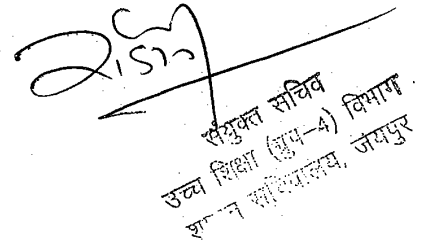 संयुक्त सचिव
उच्च शिक्षा (ग्रुप-4) विभाग
शासन सचिवालय, जयपुर